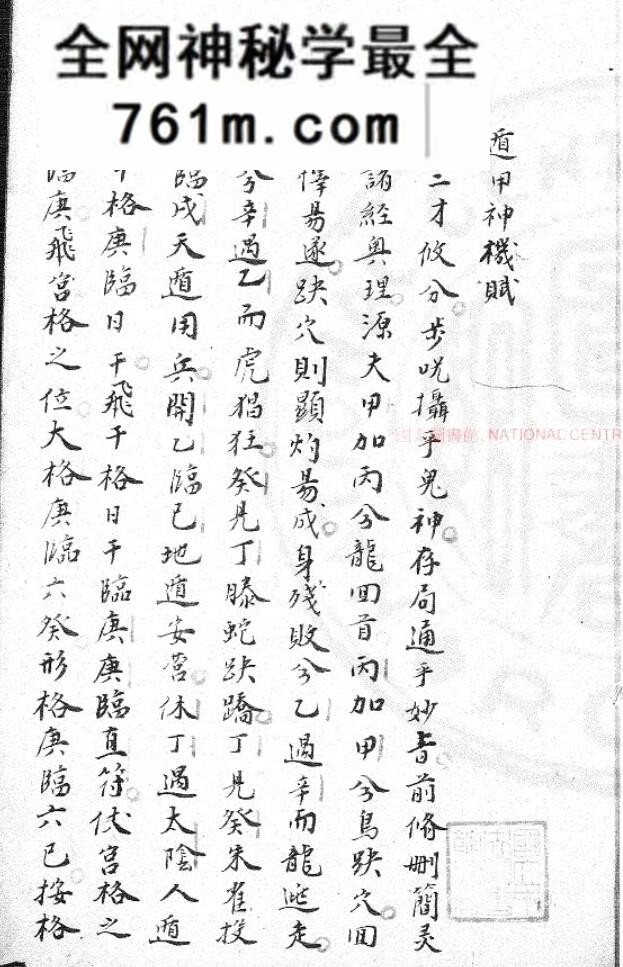 全网神秘学最全
761m.com
遁甲神機賦
二才攸分步咒攝乎鬼神存局通乎妙旨前脩刪簡灵
諸經奧理源夫甲加丙兮龍回首丙加甲兮鳥跌穴回
易遂跌穴則顯灼易成身殘敗兮乙遇辛而龍迯走
兮辛遇乙而虎猖狂癸見丁騰蛇跌蹻丁見癸朱雀投
臨戌天遁用兵開乙臨己地遁安营休丁遇太陰人遁
干格庚臨日干飛干格日干臨庚庚臨直符伏宮格之
臨庚飛宮格之位大格庚臨六癸形格庚臨六己按格
NATIONAL CENTR